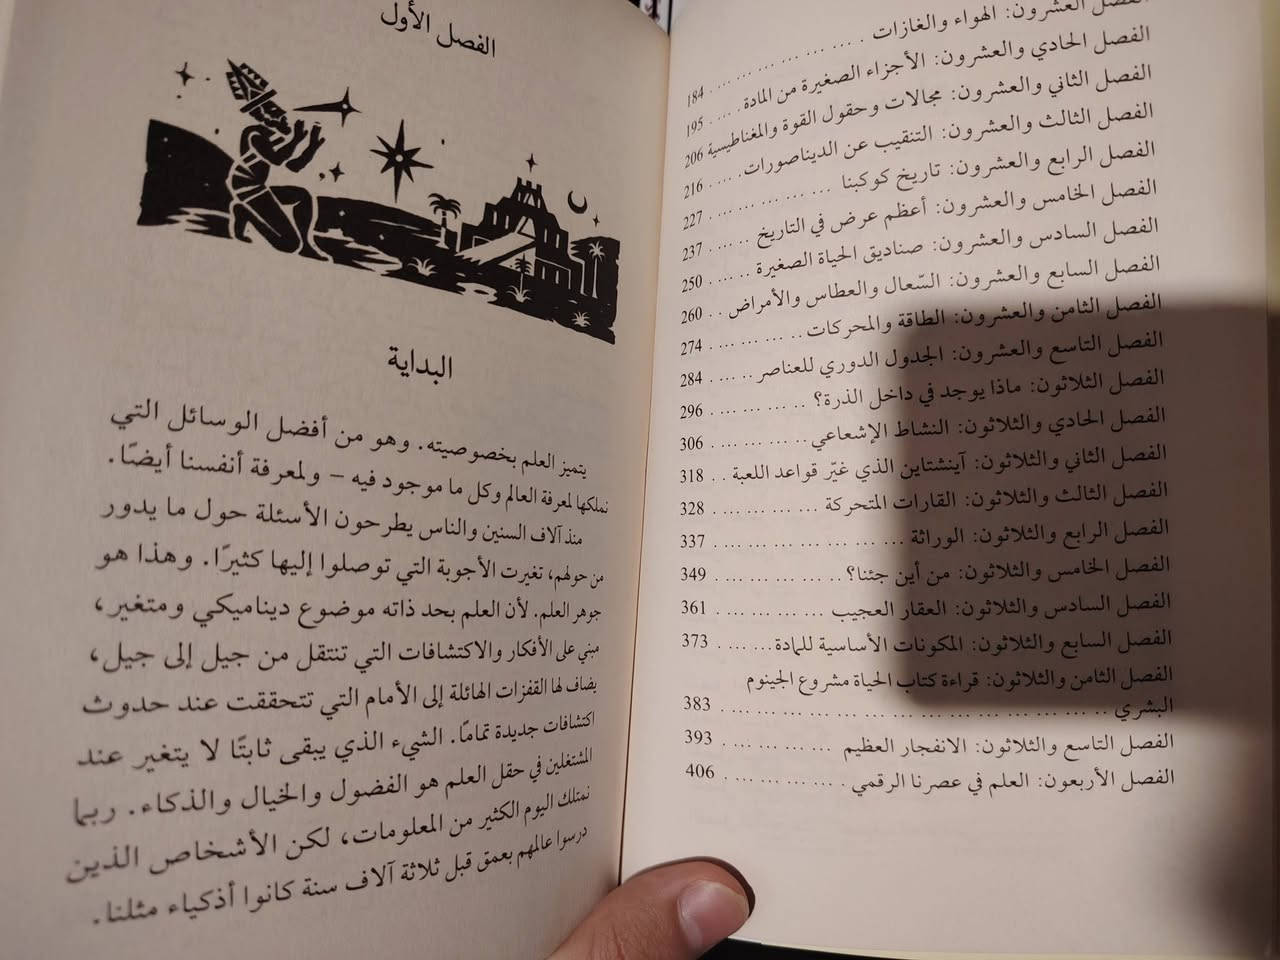 الفصل العشرون: الهواء والغازات ... ... ... ... ... 184
الفصل الحادي والعشرون: الأجزاء الصغيرة من المادة ... ... 195
الفصل الثاني والعشرون: مجالات وحقول القوة والمغناطيسية 206
الفصل الثالث والعشرون: التنقيب عن الديناصورات ... ... 216
الفصل الرابع والعشرون: تاريخ كوكبنا ... ... ... ... 227
الفصل الخامس والعشرون: أعظم عرض في التاريخ ... ... 237
الفصل السادس والعشرون: صناديق الحياة الصغيرة ... ... 250
الفصل السابع والعشرون: السّعال والعطاس والأمراض .. 260
الفصل الثامن والعشرون: الطاقة والمحركات ... ... ... 274
الفصل التاسع والعشرون: الجدول الدوري للعناصر ... ... 284
الفصل الثلاثون: ماذا يوجد في داخل الذرة؟ ... ... ... 296
الفصل الحادي والثلاثون: النشاط الإشعاعي ... ... ... 306
الفصل الثاني والثلاثون: آينشتاين الذي غيّر قواعد اللعبة .. 318
الفصل الثالث والثلاثون: القارات المتحركة ... ... ... 328
الفصل الرابع والثلاثون: الوراثة ... ... ... ... ... 337
الفصل الخامس والثلاثون: من أين جئنا؟ ... ... ... ... 349
الفصل السادس والثلاثون: العقار العجيب ... ... ... ... 361
الفصل السابع والثلاثون: المكونات الأساسية للمادة ... ... 373
الفصل الثامن والثلاثون: قراءة كتاب الحياة مشروع الجينوم
البشري ... ... ... ... ... ... ... ... ... ... 383
الفصل التاسع والثلاثون: الانفجار العظيم ... ... ... ... 393
الفصل الأربعون: العلم في عصرنا الرقمي ... ... ... ... 406
الفصل الأول
البداية
يتميز العلم بخصوصيته. وهو من أفضل الوسائل التي
نملكها لمعرفة العالم وكل ما موجود فيه – ولمعرفة أنفسنا أيضًا.
منذ آلاف السنين والناس يطرحون الأسئلة حول ما يدور
من حولهم، تغيرت الأجوبة التي توصلوا إليها كثيرًا. وهذا هو
جوهر العلم. لأن العلم بحد ذاته موضوع ديناميكي ومتغير،
مبني على الأفكار والاكتشافات التي تنتقل من جيل إلى جيل،
يضاف لها القفزات الهائلة إلى الأمام التي تتحققت عند حدوث
اكتشافات جديدة تمامًا. الشيء الذي يبقى ثابتًا لا يتغير عند
المشتغلين في حقل العلم هو الفضول والخيال والذكاء. ربما
نمتلك اليوم الكثير من المعلومات، لكن الأشخاص الذين
درسوا عالمهم بعمق قبل ثلاثة آلاف سنة كانوا أذكياء مثلنا.